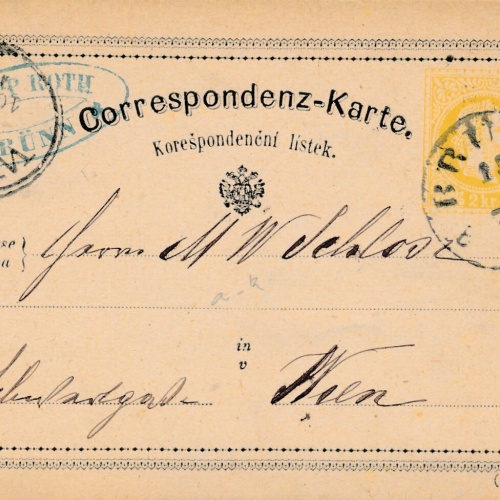 P ROTH
BRÜNN
Correspondenz-Karte.
Korešpondenční lístek.
BRÜ
2 kr
se
a }
Herrn M W Schlosz
a-k
in
v
Wien